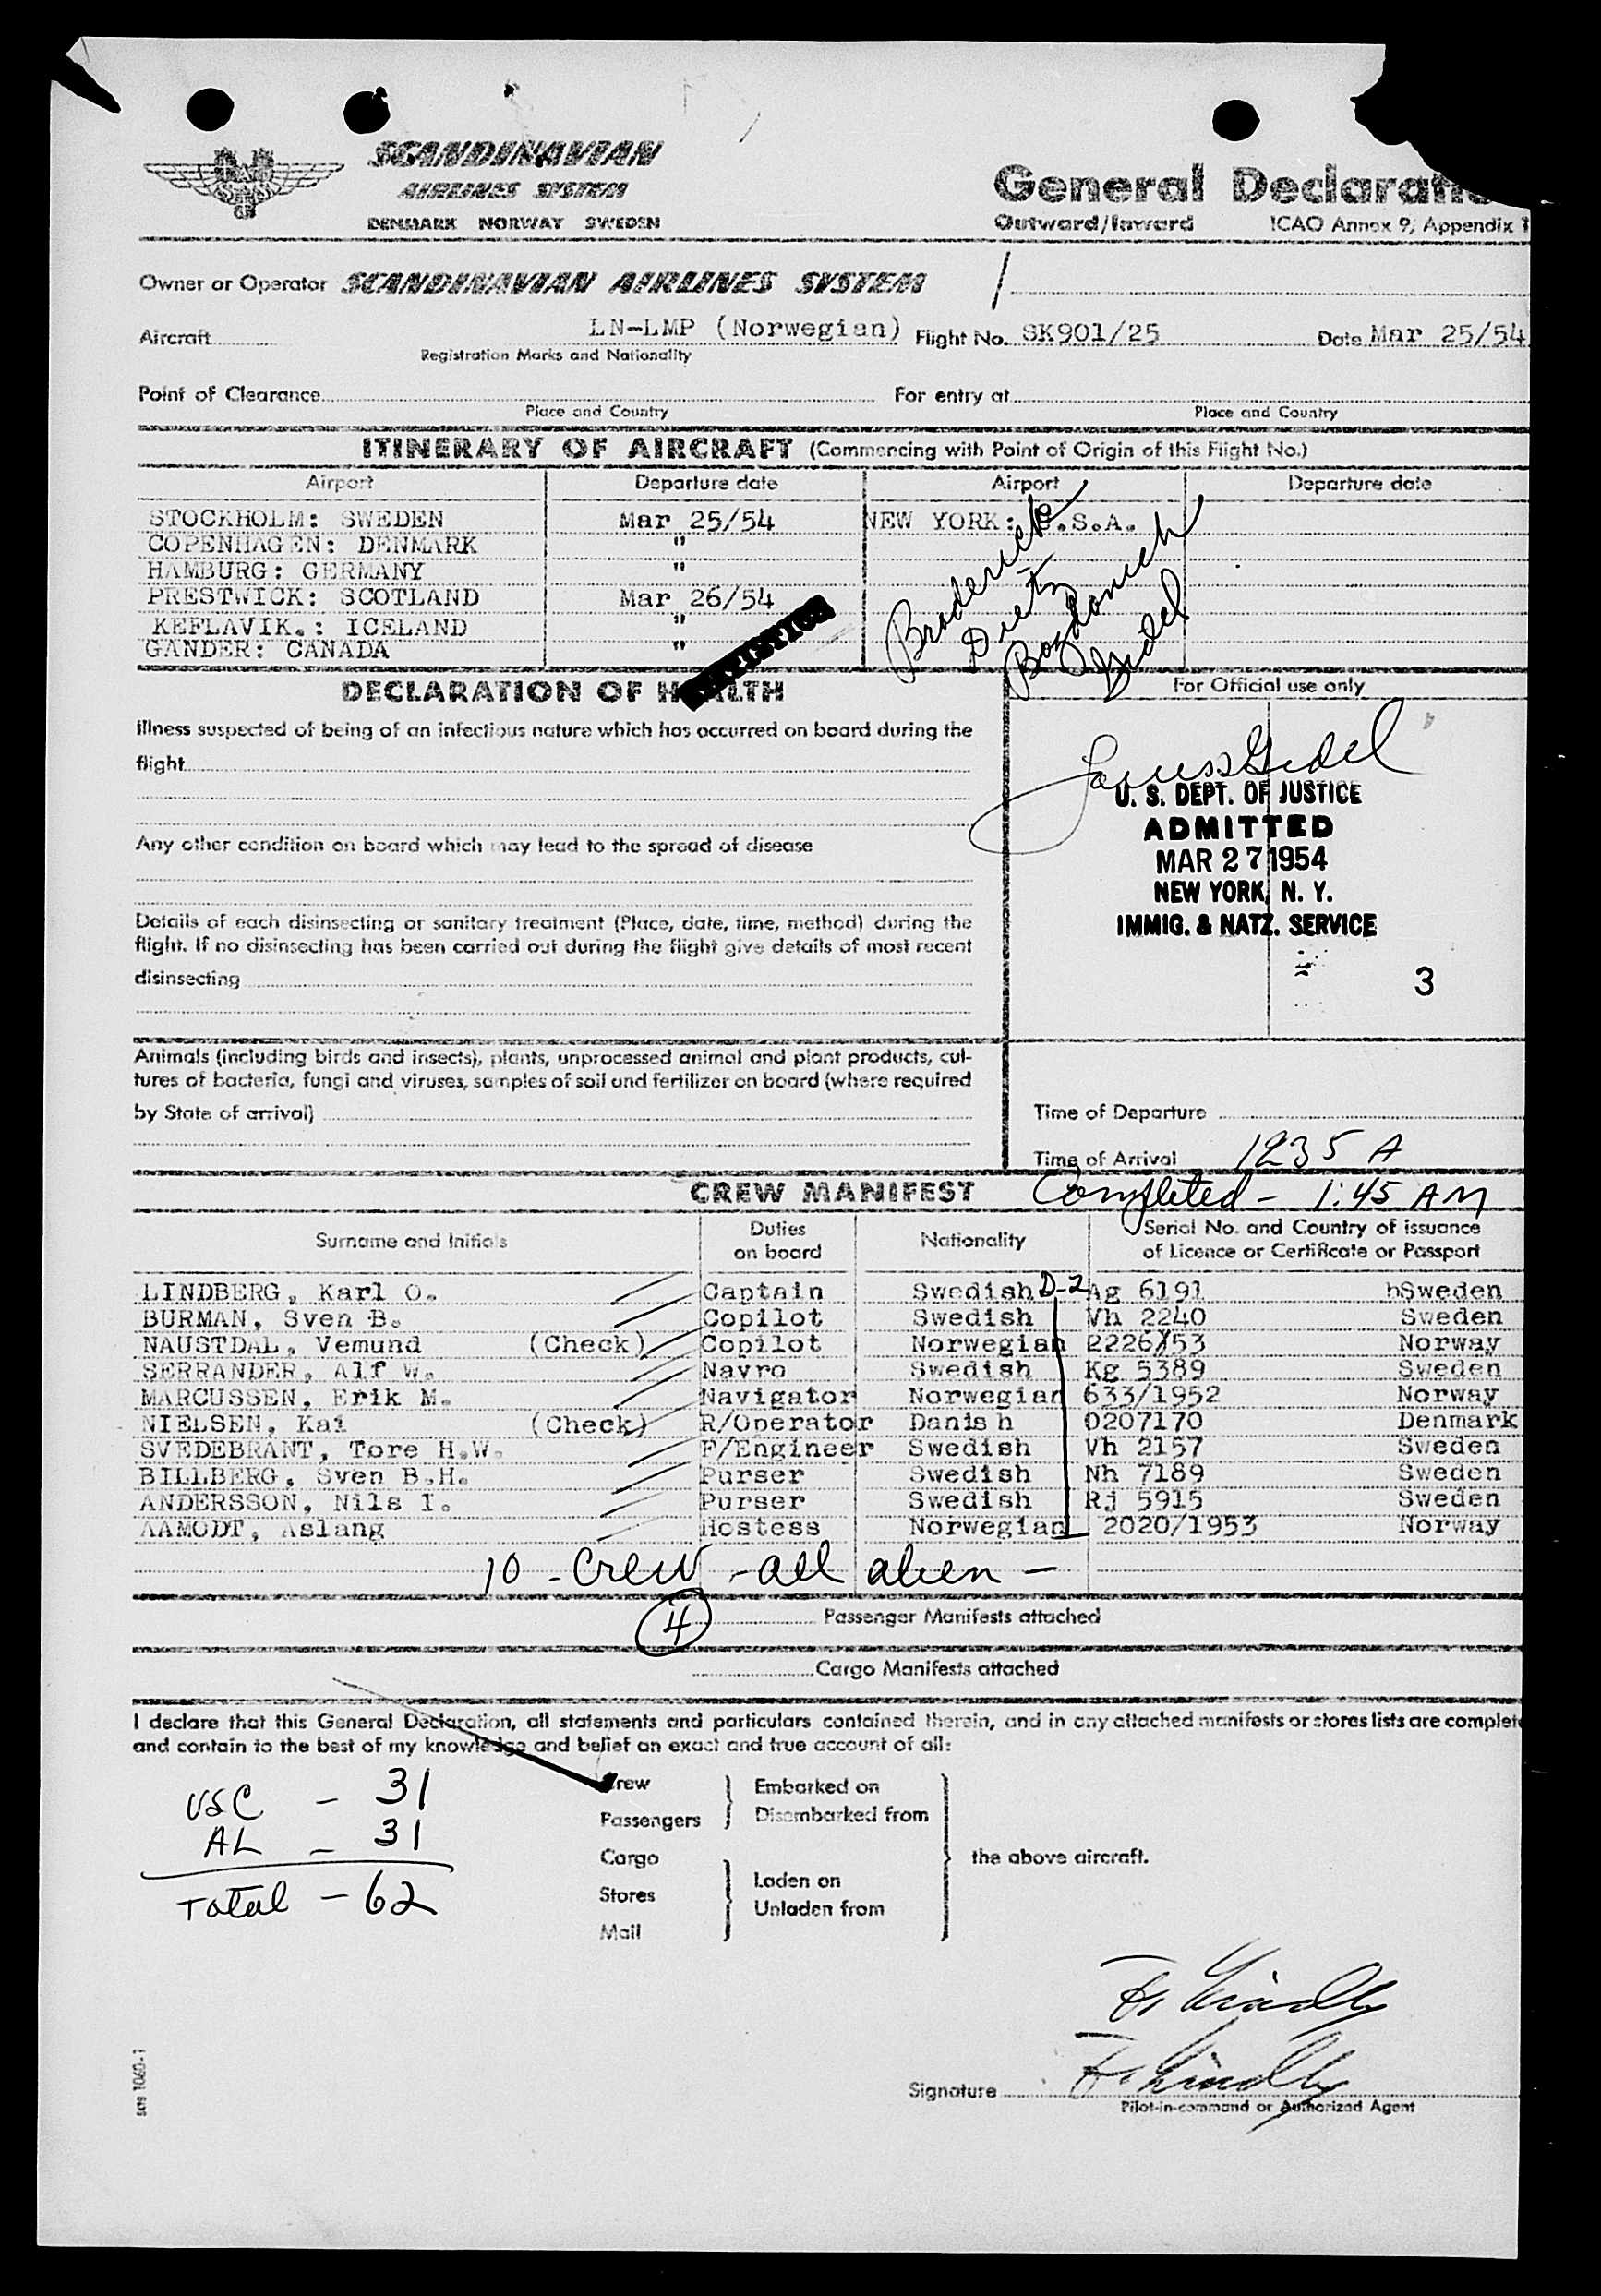 SCANDINAVIAN
AIRLINES SYSTEM
DENMARK NORWAY SWEDEN
General Declarati
Outward/Inward ICAO Annex 9, Appendix 1
Owner or Operator SCANDINAVIAN AIRLINES SYSTEM
Aircraft LN-LMP (Norwegian) Flight No. SK901/25 Date Mar 25/54
Registration Marks and Nationality
Point of Clearance For entry at
Place and Country Place and Country
ITINERARY OF AIRCRAFT (Commencing with Point of Origin of this Flight No.)
Airport Departure date Airport Departure date
STOCKHOLM: SWEDEN Mar 25/54 NEW YORK: U.S.A.
COPENHAGEN: DENMARK "
HAMBURG: GERMANY "
PRESTWICK: SCOTLAND Mar 26/54
KEFLAVIK.: ICELAND "
GANDER: CANADA "
Broderick
Dietz
Bozdonich
Gudel
STATISTICS
DECLARATION OF HEALTH
For Official use only
Illness suspected of being of an infectious nature which has occurred on board during the
flight
Any other condition on board which may lead to the spread of disease
Details of each disinsecting or sanitary treatment (Place, date, time, method) during the
flight. If no disinsecting has been carried out during the flight give details of most recent
disinsecting
U. S. DEPT. OF JUSTICE
ADMITTED
MAR 27 1954
NEW YORK, N. Y.
IMMIG. & NATZ. SERVICE
3
Animals (including birds and insects), plants, unprocessed animal and plant products, cul-
tures of bacteria, fungi and viruses, samples of soil and fertilizer on board (where required
by State of arrival)
Time of Departure
Time of Arrival 1235 A
Completed - 1:45 AM
CREW MANIFEST
Surname and Initials Duties on board Nationality Serial No. and Country of issuance of Licence or Certificate or Passport
LINDBERG, Karl O. Captain Swedish D-2 Ag 6191 bSweden
BURMAN, Sven B. Copilot Swedish Vh 2240 Sweden
NAUSTDAL, Vemund (Check) Copilot Norwegian 2226/53 Norway
SERRANDER, Alf W. Navro Swedish Kg 5389 Sweden
MARCUSSEN, Erik M. Navigator Norwegian 633/1952 Norway
NIELSEN, Kai (Check) R/Operator Danish 0207170 Denmark
SVEDEBRANT, Tore H.W. F/Engineer Swedish Vh 2157 Sweden
BILLBERG, Sven B.H. Purser Swedish Nh 7189 Sweden
ANDERSSON, Nils I. Purser Swedish Rj 5915 Sweden
AAMODT, Aslang Hostess Norwegian 2020/1953 Norway
10 - Crew - all alien -
4 Passenger Manifests attached
Cargo Manifests attached
I declare that this General Declaration, all statements and particulars contained therein, and in any attached manifests or stores lists are complete
and contain to the best of my knowledge and belief an exact and true account of all:
USC - 31
AL - 31
Total - 62
Crew
Passengers
Cargo
Stores
Mail
Embarked on
Disembarked from
Laden on
Unladen from
the above aircraft.
Signature
Pilot-in-command or Authorized Agent
SAS 1060-1